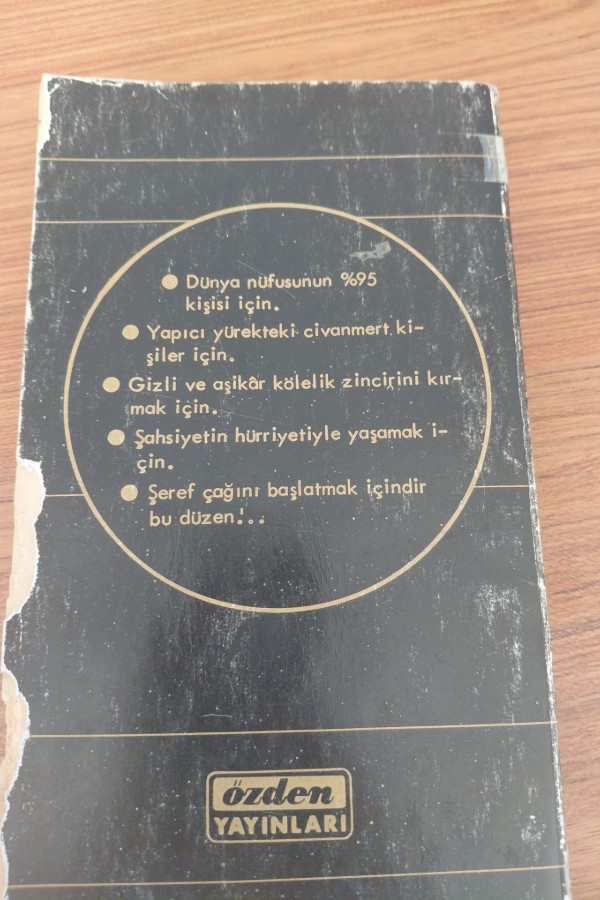 ● Dünya nüfusunun %95
kişisi için.
● Yapıcı yürekteki civanmert ki-
şiler için.
● Gizli ve aşikâr kölelik zincirini kır-
mak için.
● Şahsiyetin hürriyetiyle yaşamak i-
çin.
● Şeref çağını başlatmak içindir
bu düzen!..
özden
YAYINLARI